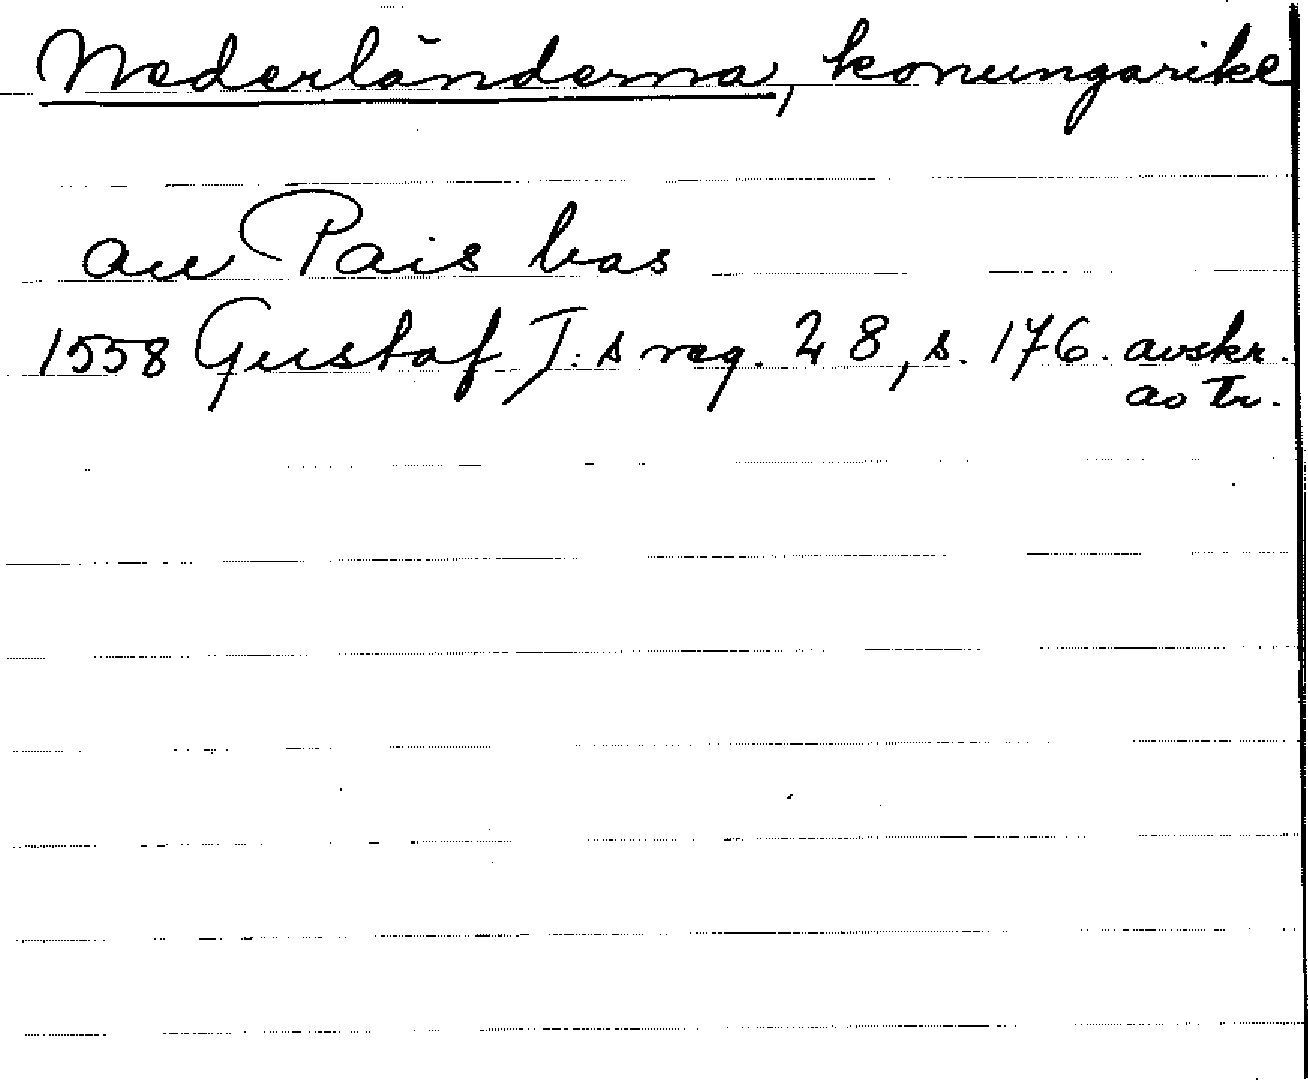 Nederländerna, konungarike
au Pais bas
1558 Gustaf I:s reg. 28, s. 176. avskr.
av Tr.